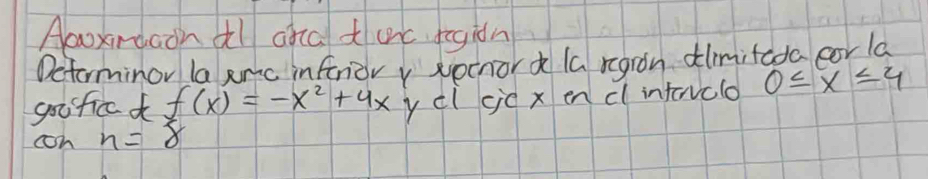 Aproximacion del area de una region
Determinar la suma inferior y superior de la region delimitada por la
grafica de f(x) = -x² + 4x y el eje x en el intervalo 0 ≤ x ≤ 4
con n = 8